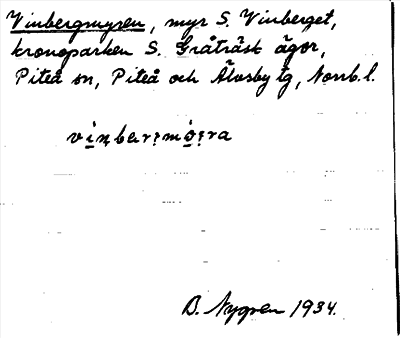 Vinbergmyren, myr S. Vinberget,
kronoparken S. Gråträsk ägor,
Piteå sn, Piteå och Älvsby tg, Norrb. l.
B. Nygren 1934.